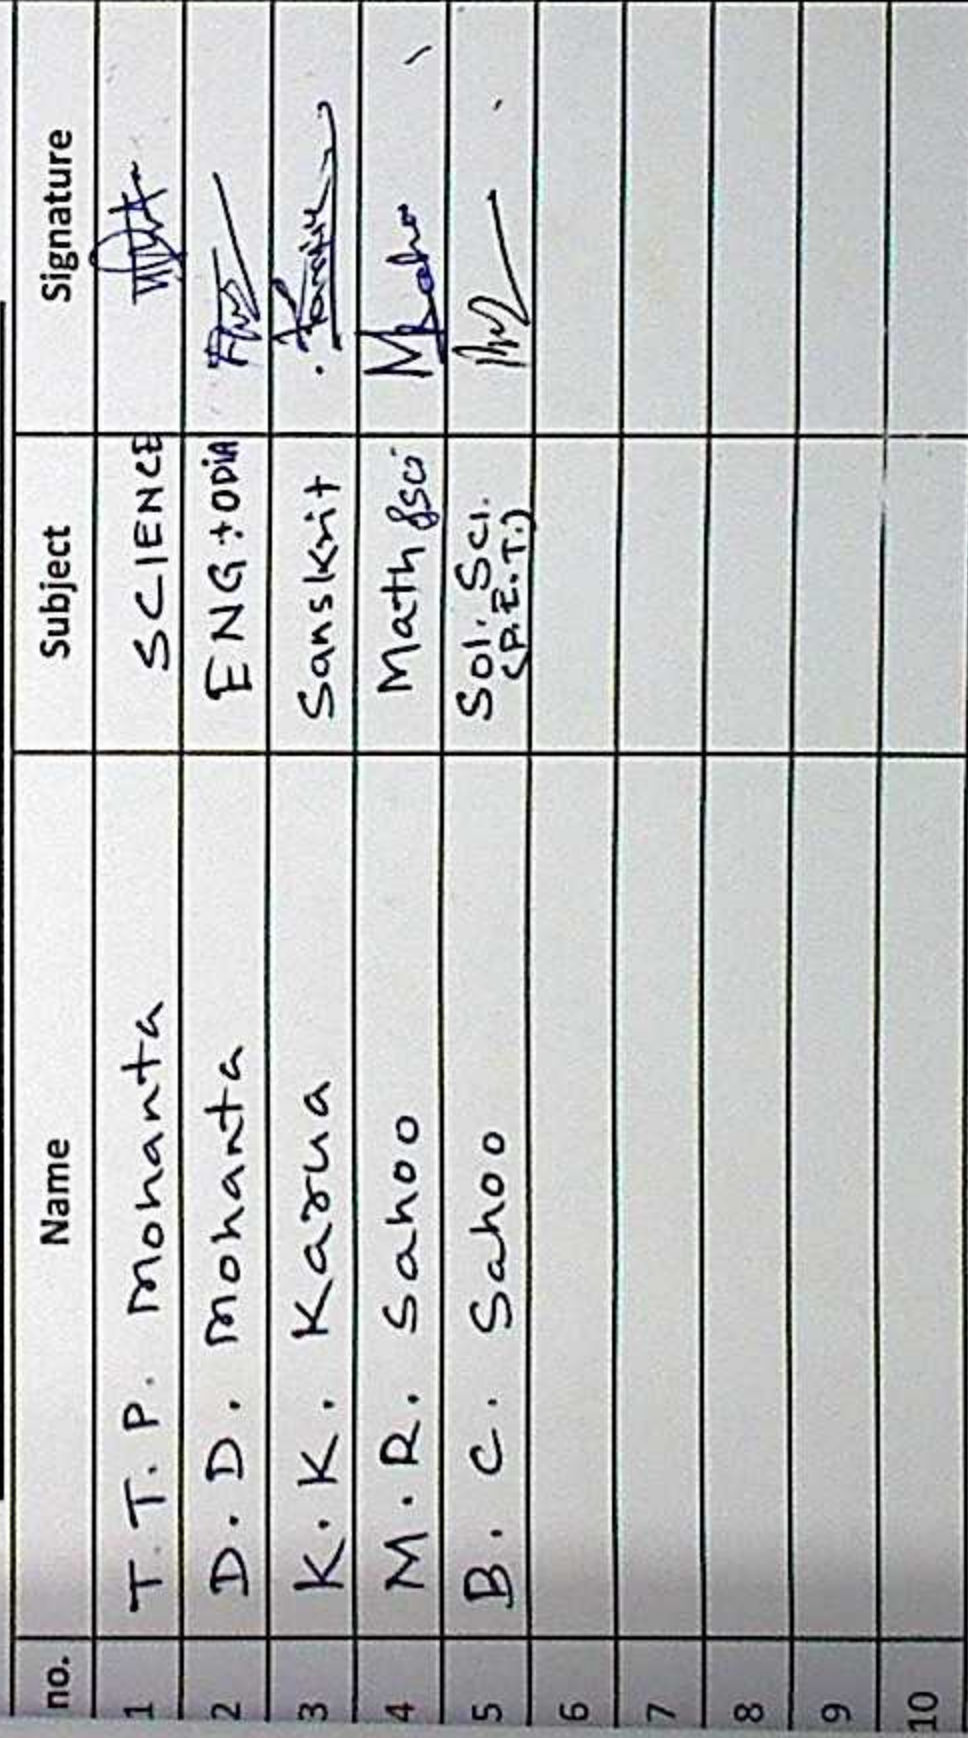 no. Name Subject Signature
1 T. T. P. Mohanta SCIENCE
2 D. D. Mohanta ENG + ODIA
3 K. K. Karua Sanskrit
4 M. R. Sahoo Math
5 B. C. Sahoo Sol. Sci.
(P.E.T.)
6
7
8
9
10